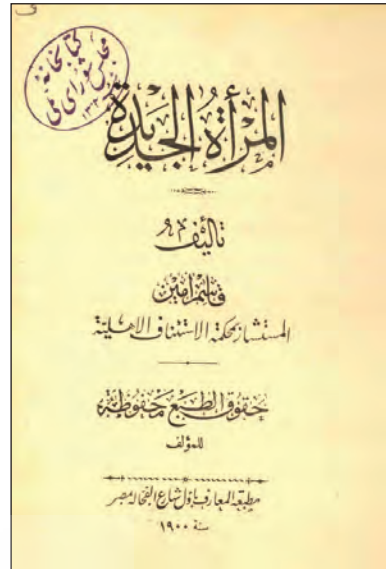 كتابخانه
مجلس شورای ملی
المرأة الجديدة
تأليف
قاسم أمين
المستشار بمحكمة الاستئناف الاهلية
حقوق الطبع محفوظة
للمؤلف
مطبعة المعارف باول شارع الفجالة بمصر
سنة ١٩٠٠